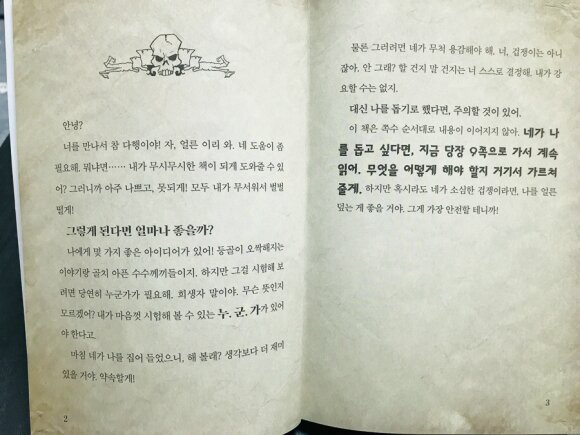 안녕?
너를 만나서 참 다행이야! 자, 얼른 이리 와. 네 도움이 좀
필요해. 뭐냐면…… 내가 무시무시한 책이 되게 도와줄 수 있
어? 그러니까 아주 나쁘고, 못되게! 모두 내가 무서워서 벌벌
떨게!
그렇게 된다면 얼마나 좋을까?
나에게 몇 가지 좋은 아이디어가 있어! 등골이 오싹해지는
이야기랑 골치 아픈 수수께끼들이지. 하지만 그걸 시험해 보
려면 당연히 누군가가 필요해. 희생자 말이야. 무슨 뜻인지
모르겠어? 내가 마음껏 시험해 볼 수 있는 누. 군. 가가 있어
야 한다고.
마침 네가 나를 집어 들었으니, 해 볼래? 생각보다 더 재미
있을 거야. 약속할게!
2
물론 그러려면 네가 무척 용감해야 해. 너, 겁쟁이는 아니
잖아. 안 그래? 할 건지 말 건지는 너 스스로 결정해. 내가 강
요할 수는 없지.
대신 나를 돕기로 했다면, 주의할 것이 있어.
이 책은 쪽수 순서대로 내용이 이어지지 않아. 네가 나
를 돕고 싶다면, 지금 당장 9쪽으로 가서 계속
읽어. 무엇을 어떻게 해야 할지 거기서 가르쳐
줄게. 하지만 혹시라도 네가 소심한 겁쟁이라면, 나를 얼른
덮는 게 좋을 거야. 그게 가장 안전할 테니까!
3